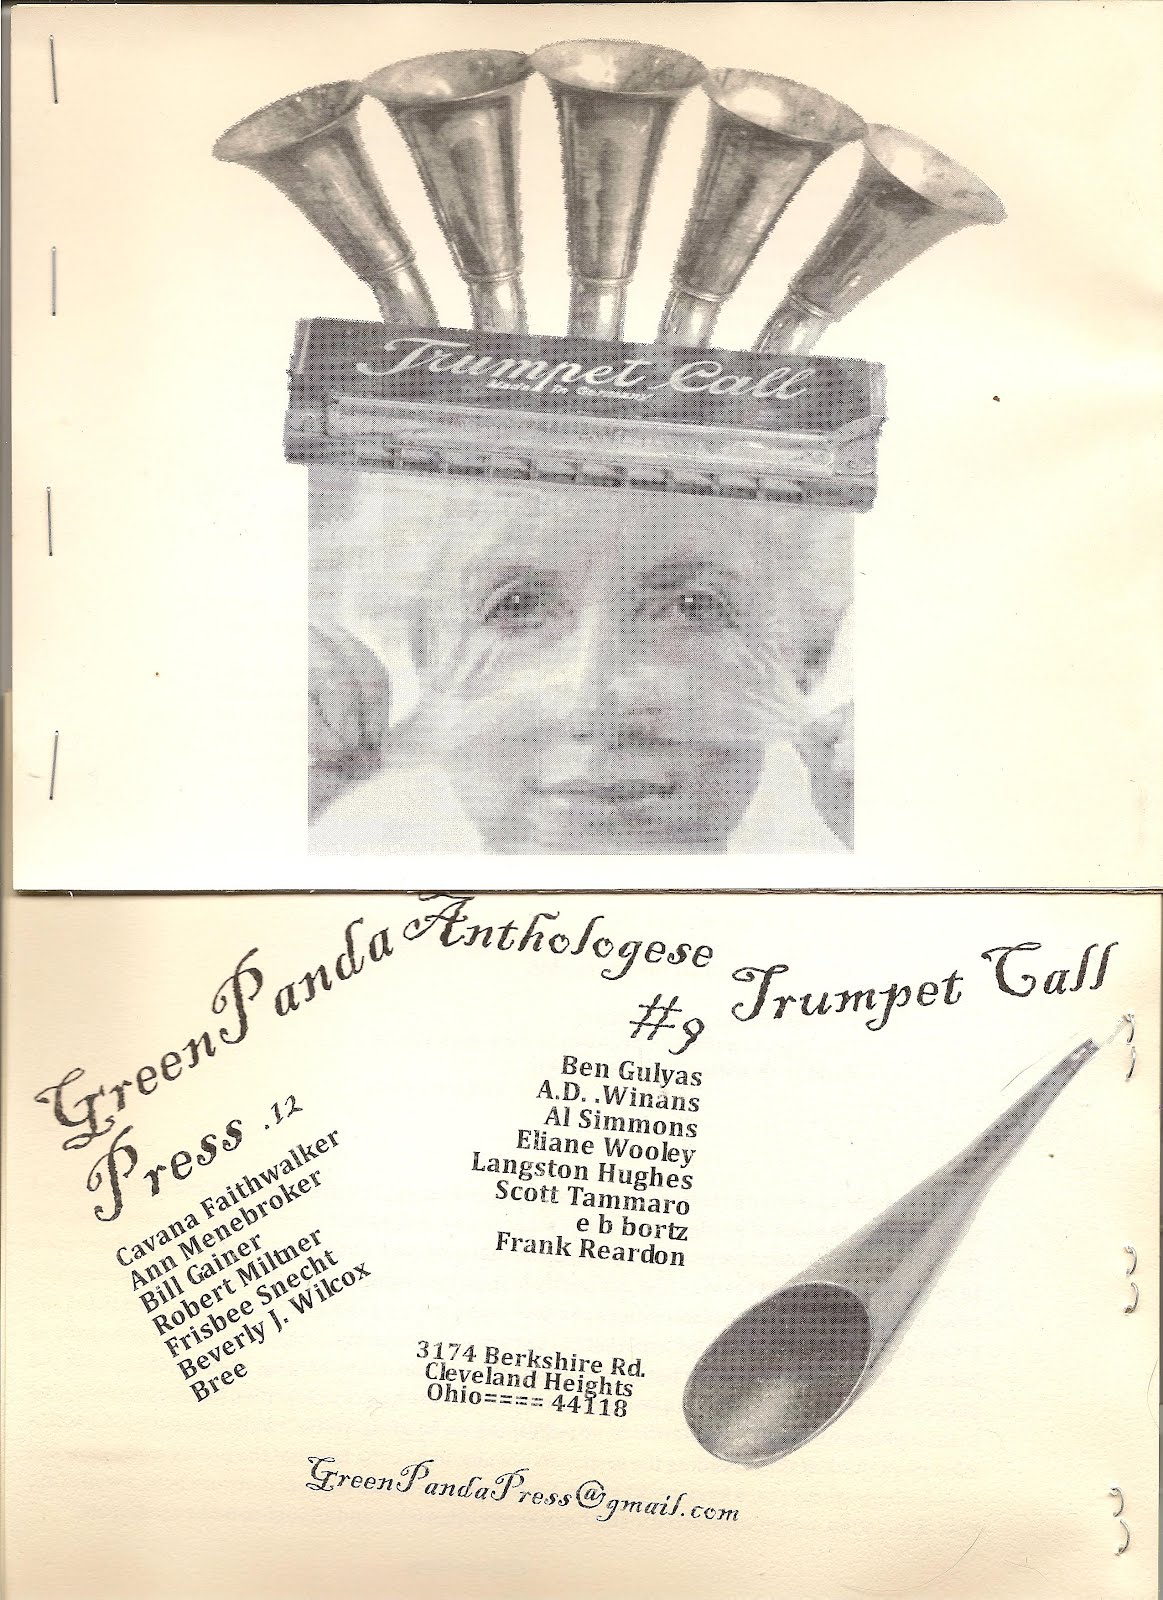 Trumpet Call
Made In Germany
GreenPanda Anthologese
Press .12
#9 Trumpet Call
Cavana Faithwalker
Ann Menebroker
Bill Gainer
Robert Miltner
Frisbee Snecht
Beverly J. Wilcox
Bree
Ben Gulyas
A.D. .Winans
Al Simmons
Eliane Wooley
Langston Hughes
Scott Tammaro
e b bortz
Frank Reardon
3174 Berkshire Rd.
Cleveland Heights
Ohio==== 44118
GreenPandaPress@gmail.com